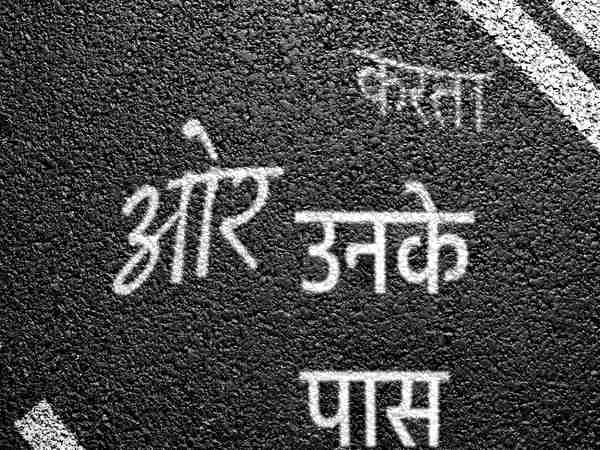 करता
ओर उनके
पास